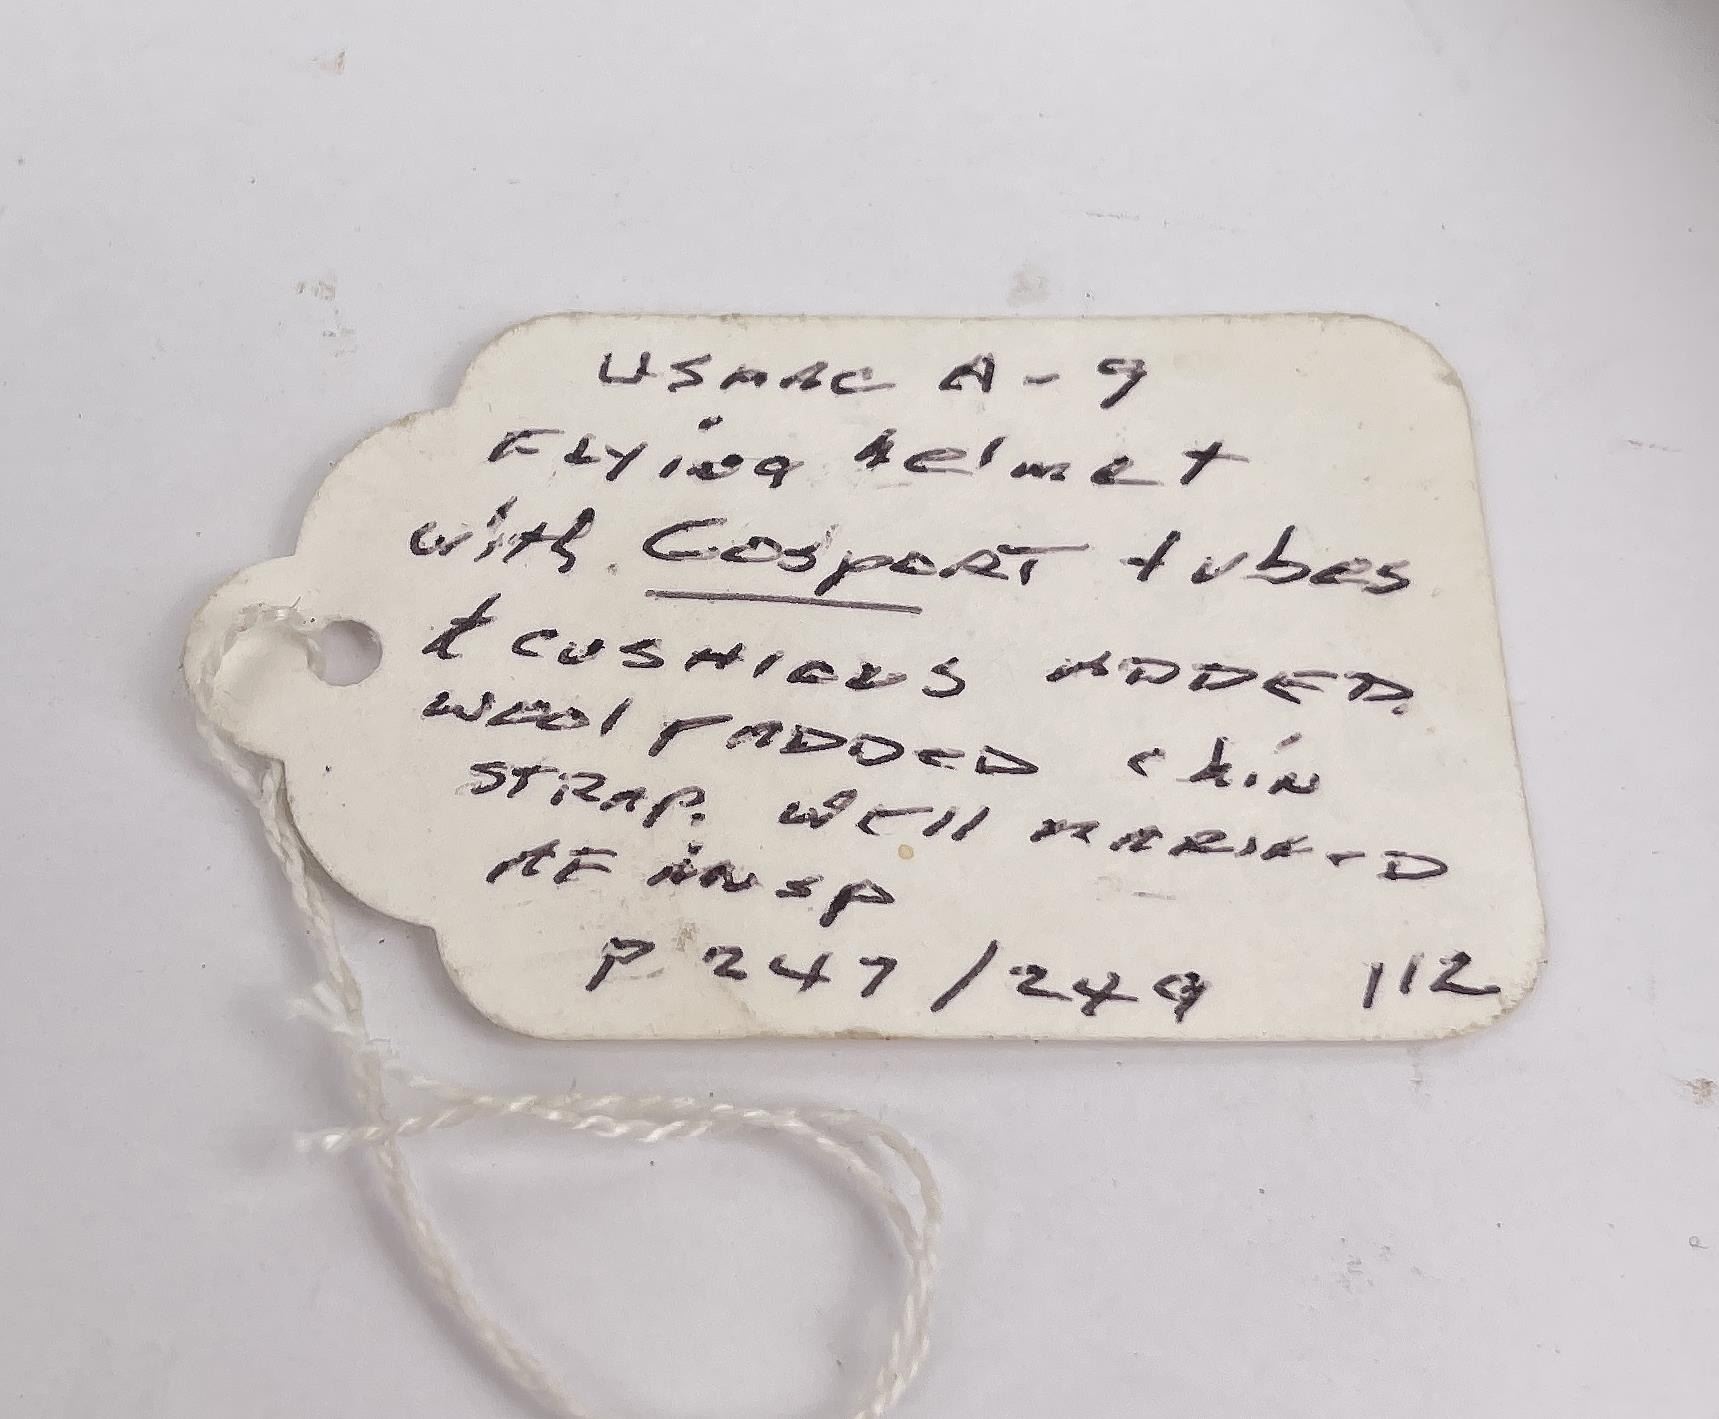 USAAC A-9
Flying helmet
with Gosport tubes
& CUSHIONS ADDED.
wool PADDED chin
STRAP. WEll MARKED
AF insp
P 247/249 112